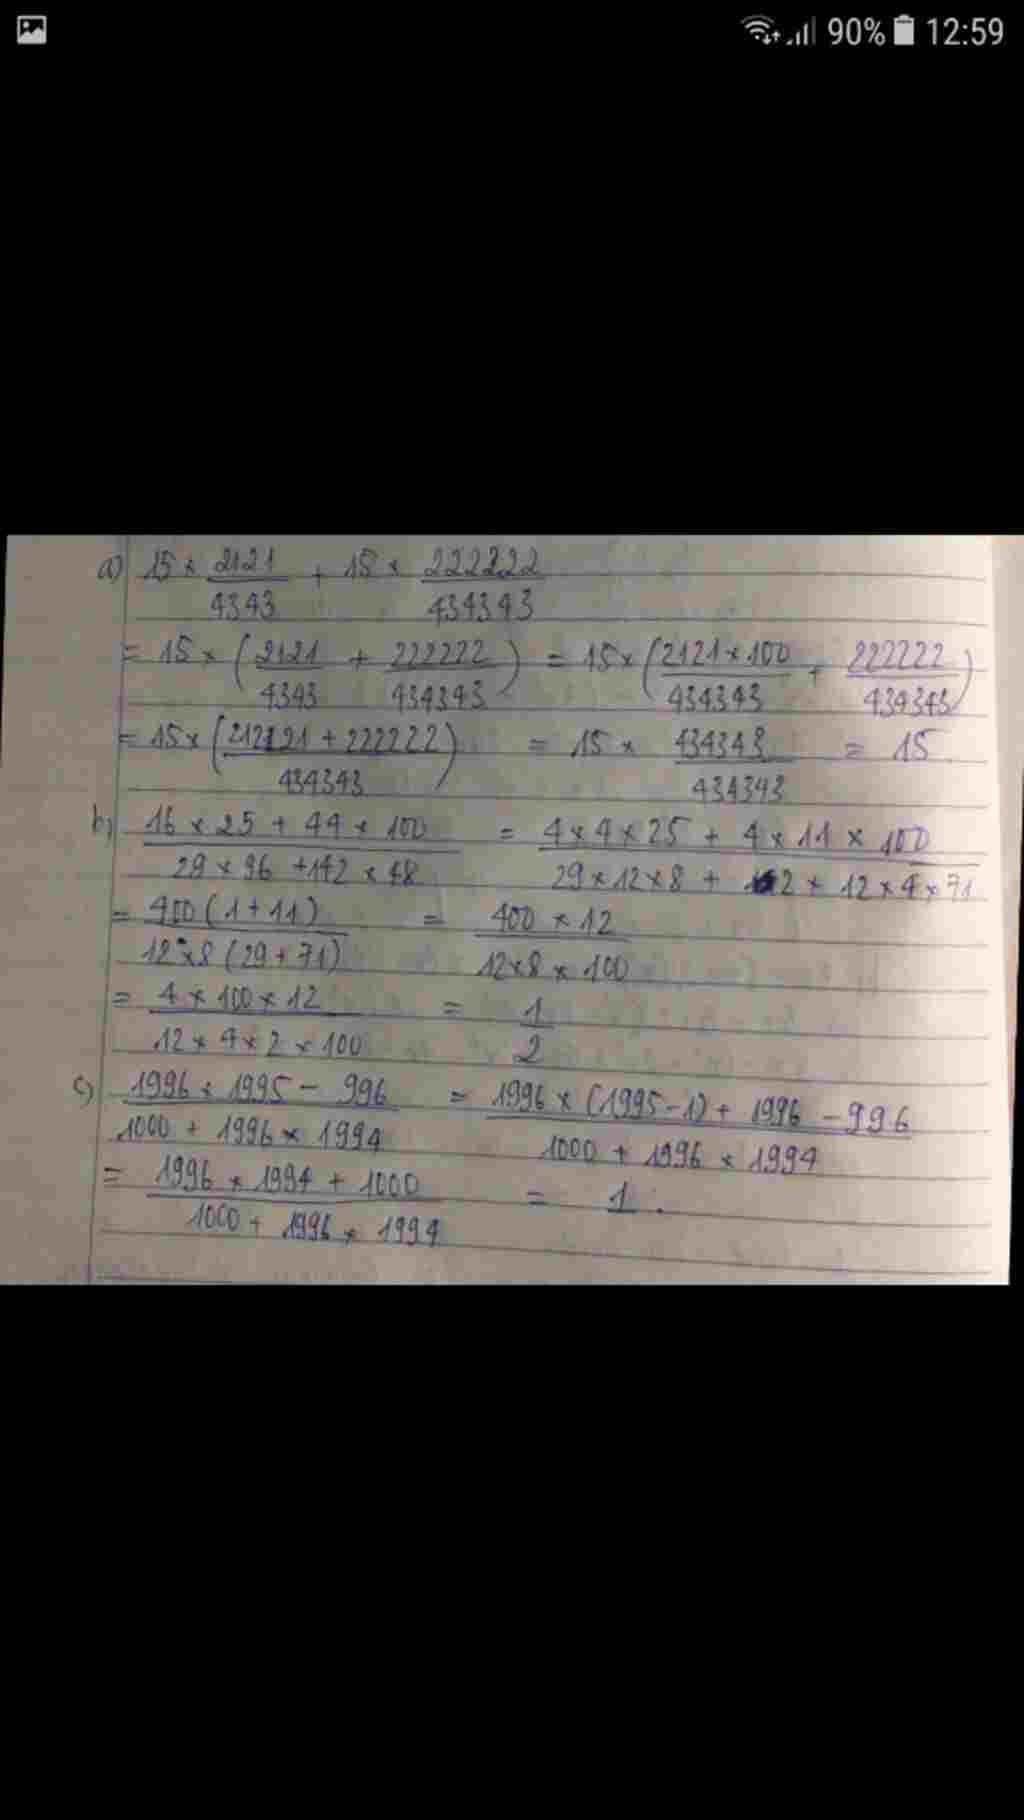 90% 12:59
a) 15 × 2121/4343 + 15 × 222222/434343
= 15 × (2121/4343 + 222222/434343) = 15 × (2121 × 100/434343 + 222222/434343)
= 15 × (212121 + 222222/434343) = 15 × 434343/434343 = 15
b) 16 × 25 + 44 × 100/29 × 96 + 142 × 48 = 4 × 4 × 25 + 4 × 11 × 100/29 × 12 × 8 + 2 × 12 × 4 × 71
= 400 (1 + 11)/12 × 8 (29 + 71) = 400 × 12/12 × 8 × 100
= 4 × 100 × 12/12 × 4 × 2 × 100 = 1/2
c) 1996 × 1995 - 996/1000 + 1996 × 1994 = 1996 × (1995 - 1) + 1996 - 996/1000 + 1996 × 1994
= 1996 × 1994 + 1000/1000 + 1996 × 1994 = 1.